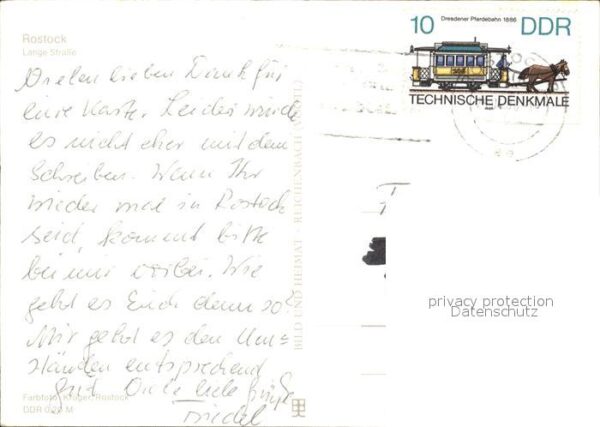 Rostock
Lange Straße
Vielen lieben Dank für
Eure Karte. Leider wurde
es nicht eher mit dem
Schreiben. Wenn Ihr
wieder mal in Rostock
seid, kommt bitte
bei mir vorbei. Wie
geht es Euch denn so?
Mir geht es den Um-
ständen entsprechend
gut. Viele liebe Grüße
Farbfoto: Krüger, Rostock
DDR 0,20 M
BILD UND HEIMAT REICHENBACH (VOGTL)
Dresdener Pferdebahn 1886
10 DDR
TECHNISCHE DENKMALE
privacy protection
Datenschutz